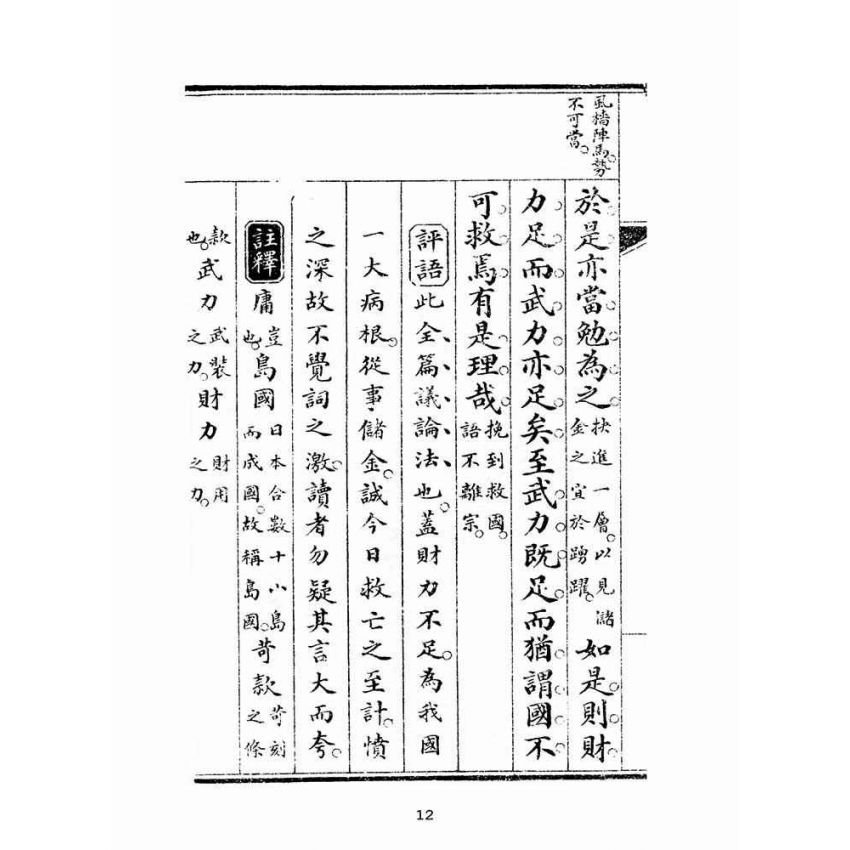 風檣陣馬勢
不可當。
於是亦當勉為之。抉進一層。以見儲金之宜於踴躍。如是。則財
力足而武力亦足矣。至武力既足。而猶謂國不
可救。焉有是理哉。挽到救國。語不離宗。
評語 此全篇議論法也。蓋財力不足。為我國
一大病根。從事儲金。誠今日救亡之至計。憤
之深。故不覺詞之激。讀者勿疑其言大而夸。
註釋 庸豈也。島國日本合數十小島而成國。故稱島國。苛款苛刻之條
款也。武力武裝之力。財力財用之力。
12